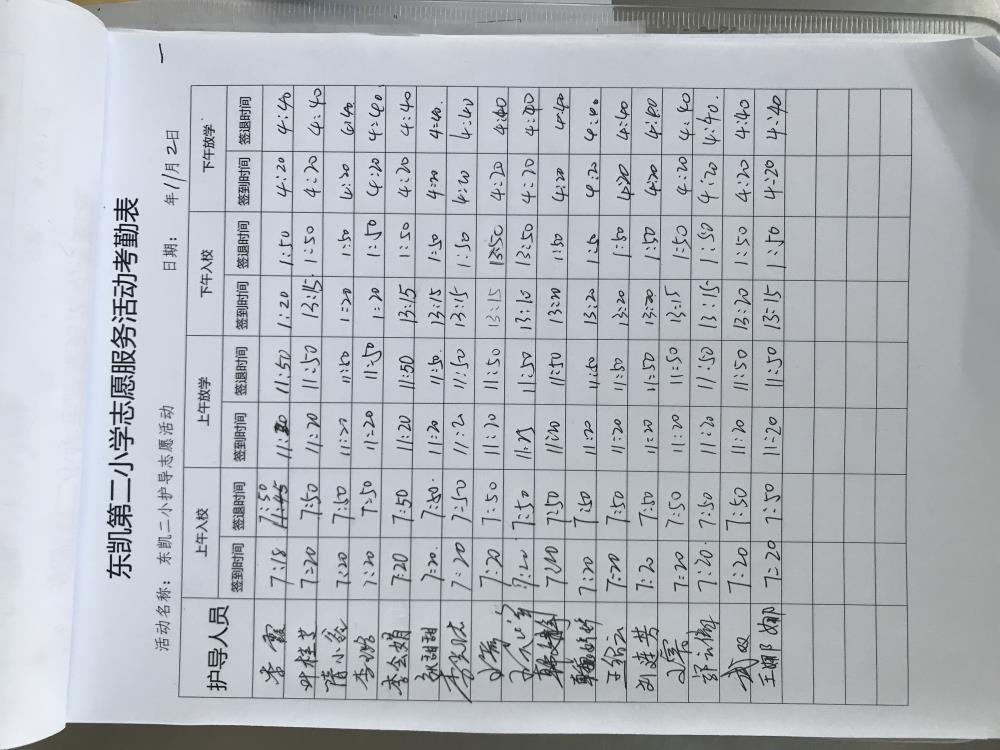 东凯第二小学志愿服务活动考勤表
活动名称：东凯二小护导志愿活动 日期： 年11月2日
护导人员 上午入校 上午放学 下午入校 下午放学
签到时间 签退时间 签到时间 签退时间 签到时间 签退时间 签到时间 签退时间
7:18 7:50 11:50 1:20 1:50 4:20 4:40
叶桂芝 7:20 7:50 11:20 11:50 13:15 1:50 4:20 4:40
7:20 7:50 11:20 11:50 1:20 1:50 4:20 4:40
7:20 7:50 11:20 11:50 1:20 1:50 4:20 4:40
李会娟 7:20 7:50 11:20 11:50 13:15 1:50 4:20 4:40
甜甜 7:20 7:50 11:20 11:50 13:15 1:50 4:20 4:40
7:20 7:50 11:20 11:50 13:15 1:50 4:20 4:40
7:20 7:50 11:20 11:50 13:15 13:50 4:20 4:40
7:20 7:50 11:50 13:10 13:50 4:20 4:40
7:20 7:50 11:20 11:50 13:20 1:50 4:20 4:40
7:20 7:50 11:20 11:50 13:20 1:50 4:20 4:40
7:20 7:50 11:20 11:50 13:20 1:50 4:20 4:40
7:20 7:50 11:20 11:50 13:20 1:50 4:20 4:40
7:20 7:50 11:20 11:50 13:15 1:50 4:20 4:40
7:20 7:50 11:20 11:50 13:15 1:50 4:20 4:40
武 7:20 7:50 11:20 11:50 13:20 1:50 4:20 4:40
王娜娜 7:20 7:50 11:20 11:50 13:15 1:50 4:20 4:40